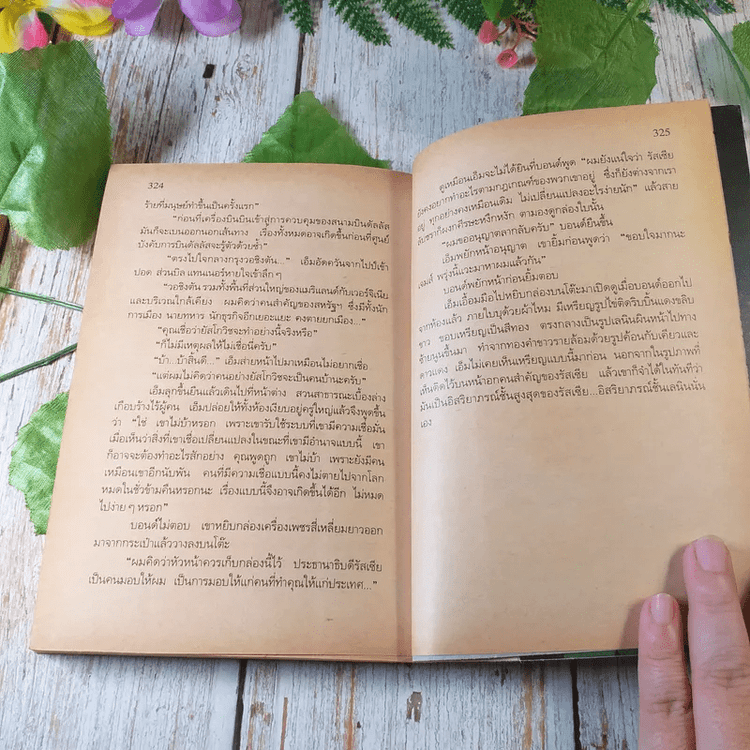 324
ร้ายที่มนุษย์ทำขึ้นเป็นครั้งแรก”
“ก่อนที่เครื่องบินบินเข้าสู่การควบคุมของสนามบินดัลลัส
มันก็จะเบนออกนอกเส้นทาง เรื่องทั้งหมดอาจเกิดขึ้นก่อนที่ศูนย์
บังคับการบินดัลลัสจะรู้ตัวด้วยซ้ำ”
“ตรงไปใจกลางกรุงวอชิงตัน...” เอ็มอัดควันจากไปป์เข้า
ปอด ส่วนบิล แทนเนอร์หายใจเข้าลึก ๆ
“วอชิงตัน รวมทั้งพื้นที่ส่วนใหญ่ของแมริแลนด์กับเวอร์จิเนีย
และบริเวณใกล้เคียง ผมคิดว่าคนสำคัญของสหรัฐฯ ซึ่งมีทั้งนัก
การเมือง นายทหาร นักธุรกิจอีกเยอะแยะ คงตายยกเมือง...”
“คุณเชื่อว่ายัสโกวิชจะทำอย่างนี้จริงหรือ”
“ก็ไม่มีเหตุผลให้ไม่เชื่อนี่ครับ”
“บ้า...บ้าสิ้นดี...” เอ็มส่ายหน้าไปมาเหมือนไม่อยากเชื่อ
“แต่ผมไม่คิดว่าคนอย่างยัสโกวิชจะเป็นคนบ้านะครับ”
เอ็มลุกขึ้นยืนแล้วเดินไปที่หน้าต่าง สวนสาธารณะเบื้องล่าง
เกือบร้างไร้ผู้คน เอ็มปล่อยให้ทั้งห้องเงียบอยู่ครู่ใหญ่แล้วจึงพูดขึ้น
ว่า “ใช่ เขาไม่บ้าหรอก เพราะเขารับใช้ระบบที่เขามีความเชื่อมั่น
เมื่อเห็นว่าสิ่งที่เขาเชื่อเปลี่ยนแปลงในขณะที่เขามีอำนาจแบบนี้ เขา
ก็อาจจะต้องทำอะไรสักอย่าง คุณพูดถูก เขาไม่บ้า เพราะยังมีคน
เหมือนเขาอีกนับพัน คนที่มีความเชื่อแบบนี้คงไม่ตายไปจากโลก
หมดในชั่วข้ามคืนหรอกนะ เรื่องแบบนี้จึงอาจเกิดขึ้นได้อีก ไม่หมด
ไปง่าย ๆ หรอก”
บอนด์ไม่ตอบ เขาหยิบกล่องเครื่องเพชรสี่เหลี่ยมยาวออก
มาจากกระเป๋าแล้ววางลงบนโต๊ะ
“ผมคิดว่าหัวหน้าควรเก็บกล่องนี้ไว้ ประธานาธิบดีรัสเซีย
เป็นคนมอบให้ผม เป็นการมอบให้แก่คนที่ทำคุณให้แก่ประเทศ...”
325
ดูเหมือนเอ็มจะไม่ได้ยินที่บอนด์พูด “ผมยังแน่ใจว่า รัสเซีย
ยังคงอยากทำอะไรตามกฎเกณฑ์ของพวกเขาอยู่ ซึ่งก็ยังต่างจากเรา
อยู่ ทุกอย่างคงเหมือนเดิม ไม่เปลี่ยนแปลงอะไรง่ายนัก” แล้วสาย
ลับชราก็ผงกศีรษะหงึกหงัก ตามองดูกล่องใบนั้น
“ผมขออนุญาตลากลับครับ” บอนด์ยืนขึ้น
เอ็มพยักหน้าอนุญาต เขายิ้มก่อนพูดว่า “ขอบใจมากนะ
เจมส์ พรุ่งนี้แวะมาหาผมแล้วกัน”
บอนด์พยักหน้าก่อนยิ้มตอบ
เอ็มเอื้อมมือไปหยิบกล่องบนโต๊ะมาเปิดดูเมื่อบอนด์ออกไป
จากห้องแล้ว ภายในบุด้วยผ้าไหม มีเหรียญรูปไข่ติดริบบิ้นแดงขลิบ
ขาว ขอบเหรียญเป็นสีทอง ตรงกลางเป็นรูปเลนินผินหน้าไปทาง
ซ้ายนูนขึ้นมา ทำจากทองคำขาวรายล้อมด้วยรูปค้อนกับเคียวและ
ดาวแดง เอ็มไม่เคยเห็นเหรียญแบบนี้มาก่อน นอกจากในรูปภาพที่
เห็นติดไว้บนหน้าอกคนสำคัญของรัสเซีย แล้วเขาก็จำได้ในทันทีว่า
มันเป็นอิสริยาภรณ์ชั้นสูงสุดของรัสเซีย...อิสริยาภรณ์ชั้นเลนินนั่น
เอง